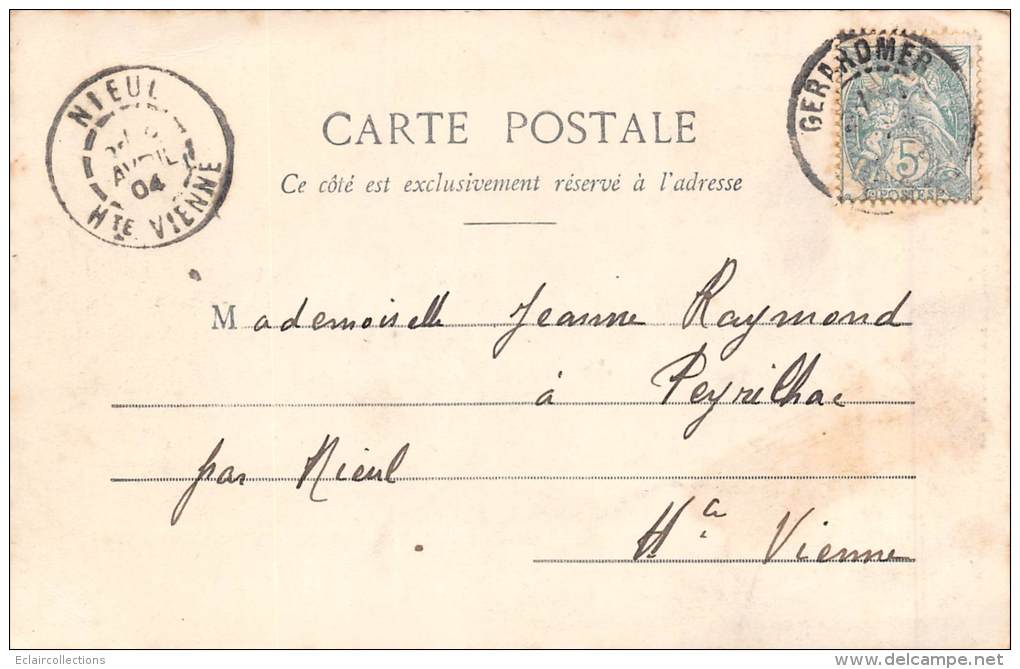 GERARDMER
5
POSTES
NIEUL
AVRIL
04
Hte VIENNE
CARTE POSTALE
Ce côté est exclusivement réservé à l'adresse
Mademoiselle Jeanne Raymond
à Peyrilhac
par Nieul
Hte Vienne
Eclaircollections
delcampe.net